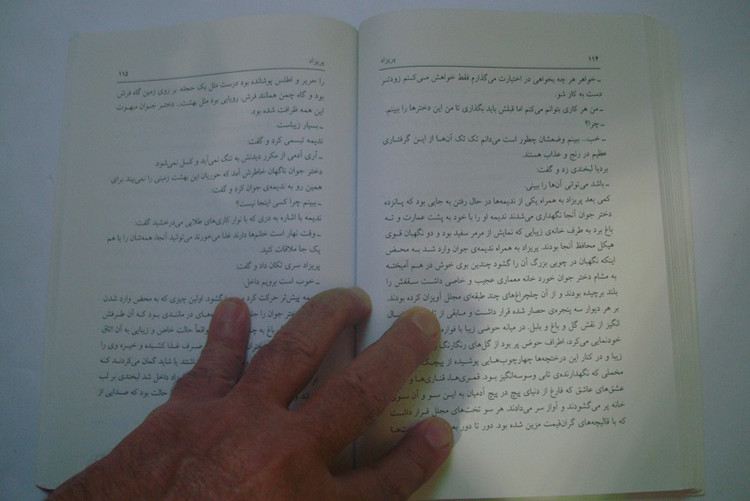 ۱۱۴ پریزاد
ـ خواهر هر چه بخواهی در اختیارت می‌گذارم فقط خواهش می‌کنم زودتر
دست به کار شو.
ـ من هر کاری بتوانم می‌کنم اما قبلش باید بگذاری تا من این دخترها را ببینم.
ـ چرا؟
ـ خب... ببینم وضعشان چطور است می‌دانم تک تک آن‌ها از این گرفتاری
عظیم در رنج و عذاب هستند.
بردیا لبخندی زد و گفت:
ـ باشد می‌توانی آن‌ها را ببینی.
کمی بعد پریزاد به همراه یکی از ندیمه‌ها در حال رفتن به جایی بود که پانزده
دختر جوان آنجا نگهداری می‌شدند ندیمه او را با خود به پشت عمارت و ته
باغ برد به طرف خانه‌ی زیبایی که نمایش از مرمر سفید بود و دو نگهبان قوی
هیکل محافظ آنجا بودند. پریزاد به همراه ندیمه‌ی جوان وارد شد به محض
اینکه نگهبان در چوبی بزرگ آن را گشود چندین بوی خوش در هم آمیخته
به مشام دختر جوان خورد خانه معماری عجیب و خاصی داشت سقفش را
بلند برچیده بودند و از آن چلچراغ‌های چند طبقه‌ای مجلل آویزان کرده بودند.
بر هر دیوار سه پنجره‌ی حصار شده قرار داشت و مبابقی از
انگیز از نقش گل و باغ و بلبل. در میانه حوضی زیبا با فواره
خودنمایی می‌کرد، اطراف حوض پر بود از گل‌های رنگارنگ
زیبا و در کنار این درختچه‌ها چهارچوب‌هایی پوشیده از پیچک
مخملی که نگهدارنده‌ی تابی وسوسه‌انگیز بود. قمری‌ها، قناری‌ها و
عشق‌های عاشق که فارغ از دنیای پیچ در پیچ آدمیان به این سو و آن سوی
خانه پر می‌گشودند و آواز سر می‌دادند. هر سو تخت‌های مجلل قرار داشت
که با قالیچه‌های گران‌قیمت مزین شده بود. دور تا دور
پریزاد ۱۱۵
را حریر و اطلس پوشانده بود درست مثل یک حجله بر روی زمین گاه فرش
بود و گاه چمن همانند فرش، رویایی بود مثل بهشت. دختر جوان مبهوت
این همه ظرافت شده بود.
ـ بسیار زیباست
ندیمه تبسمی کرد و گفت:
ـ آری آدمی از مکرر دیدنش به تنگ نمی‌آید و کسل نمی‌شود
دختر جوان ناگهان خاطرش آمد که حوریان این بهشت زمینی را نمی‌بیند برای
همین رو به ندیمه‌ی جوان کرد و گفت:
ـ ببینم چرا کسی اینجا نیست؟
ندیمه با اشاره به دری که با نوار کاری‌های طلایی می‌درخشید گفت:
ـ وقت نهار است خانم‌ها دارند غذا می‌خورند می‌توانید آنجا، همه‌شان را با هم
یک جا ملاقات کنید.
پریزاد سری تکان داد و گفت:
ـ خوب است برویم داخل.
پیش‌تر حرکت کرد گشود. اولین چیزی که به محض وارد شدن
دختر جوان را بود که آن طرفش
باغ به واقعاً حالت خاص و زیبایی به آن اتاق
صرف غذا کشیده و خیره وی را
هستند. یا شاید گمان می‌کردند که
داخل شد لبخندی بر لب
حالت بود که صدایی از